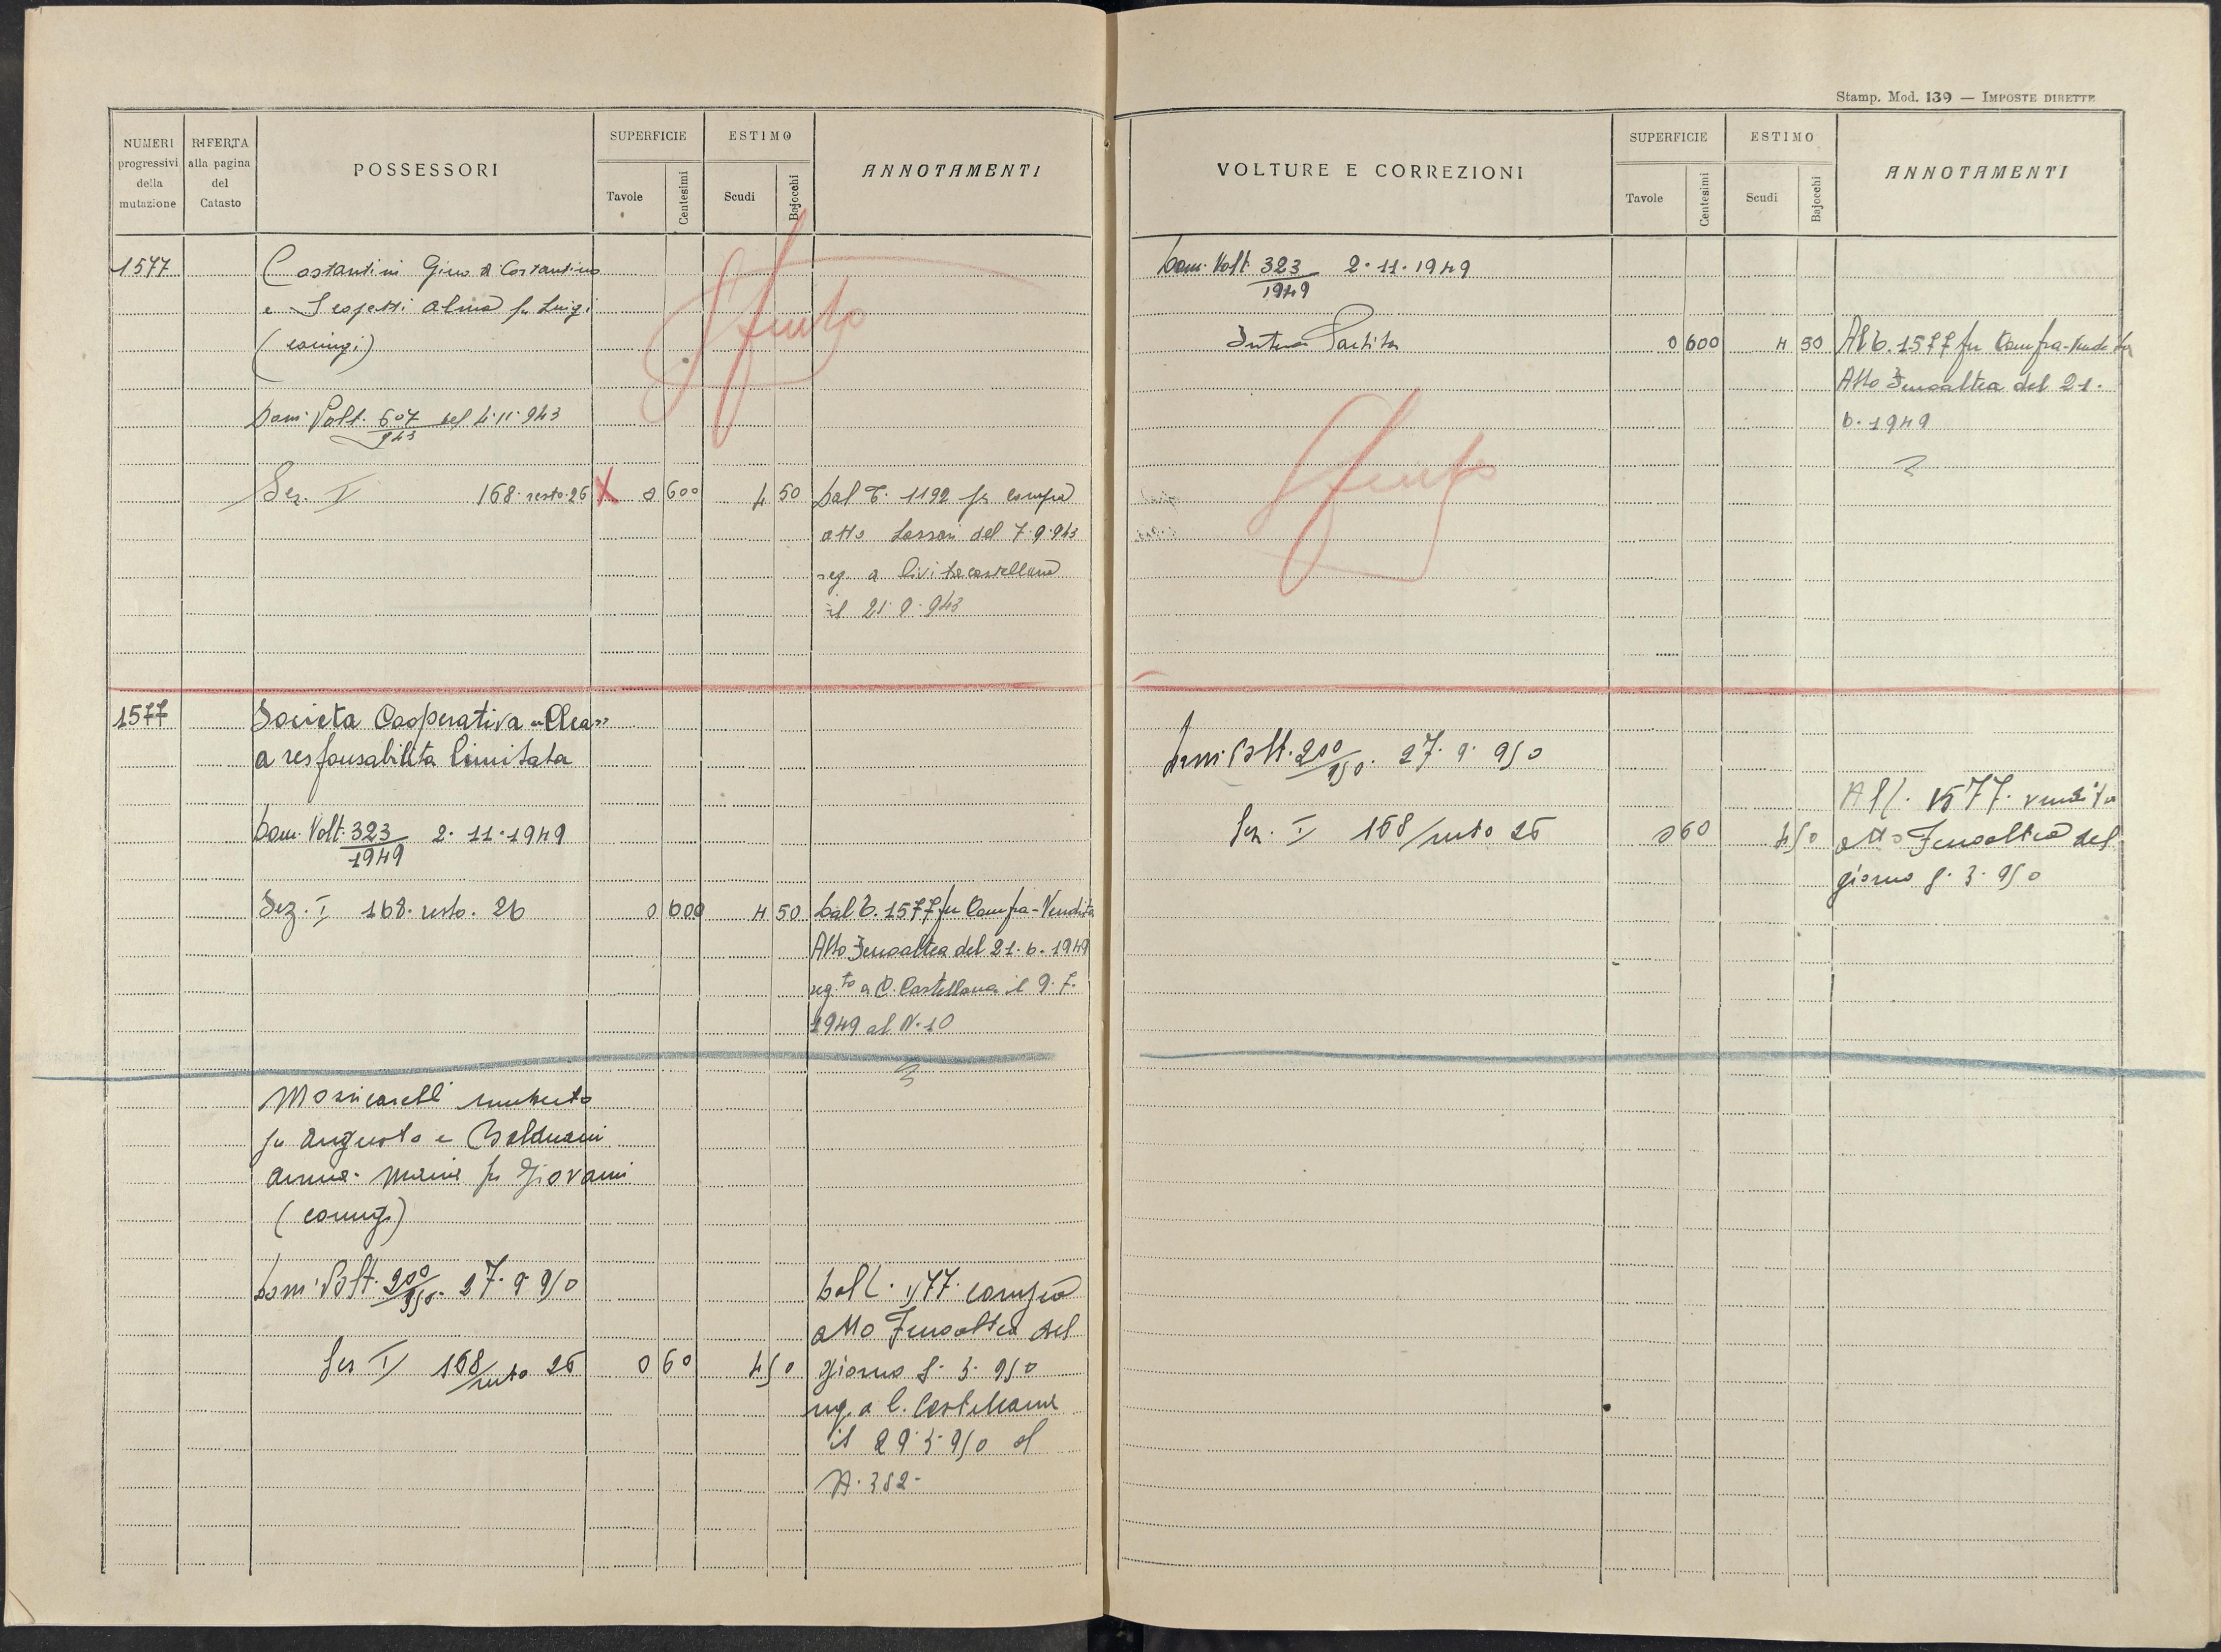 Stamp. Mod. 139 — IMPOSTE DIRETTE
NUMERI progressivi della mutazione
RIFERTA alla pagina del Catasto
POSSESSORI
SUPERFICIE
Tavole
Centesimi
ESTIMO
Scudi
Bajocchi
ANNOTAMENTI
1577 Costantini Gino di Costantino
e Alma fu Luigi
(coniugi)
Dom. Volt. 607/943 del 4.11.943
Sez. I 168 resto 26 X 0 600 4 50 Dal C. 1192 per compra
atto del 7.9.943
reg. a Civitacastellana
il 21.9.943
1577 Società Cooperativa "Clea"
a responsabilità limitata
Dom. Volt. 323/1949 2.11.1949
Sez. I 168. resto. 26 0 600 4 50 Dal C. 1577 per Compra-Vendita
Atto Fenoaltea del 21.6.1949
reg.to a C. Castellana il 9.7.
1949 al N. 10
Moscicarelli Umberto
fu Augusto e Balduini
Anna Maria fu Giovanni
(coniugi)
Dom. Volt. 200/950. 27.9.950
Sez I 168/resto 26 0 60 4 50
Dal C. 1577. compra
atto Fenoaltea del
giorno 8.3.950
reg. a C. Castellana
il 29.3.950 al
N. 382.
VOLTURE E CORREZIONI
SUPERFICIE
Tavole
Centesimi
ESTIMO
Scudi
Bajocchi
ANNOTAMENTI
Dom. Volt. 323/1949 2.11.1949
Intera Partita 0 600 4 50 Al C. 1577 per Compra-Vendita
Atto Fenoaltea del 21.
6.1949
Dom. Volt. 200/950. 27.9.950
Sez. I 168/resto 26 0 60 4 50
Al C. 1577. vendita
atto Fenoaltea del
giorno 8.3.950